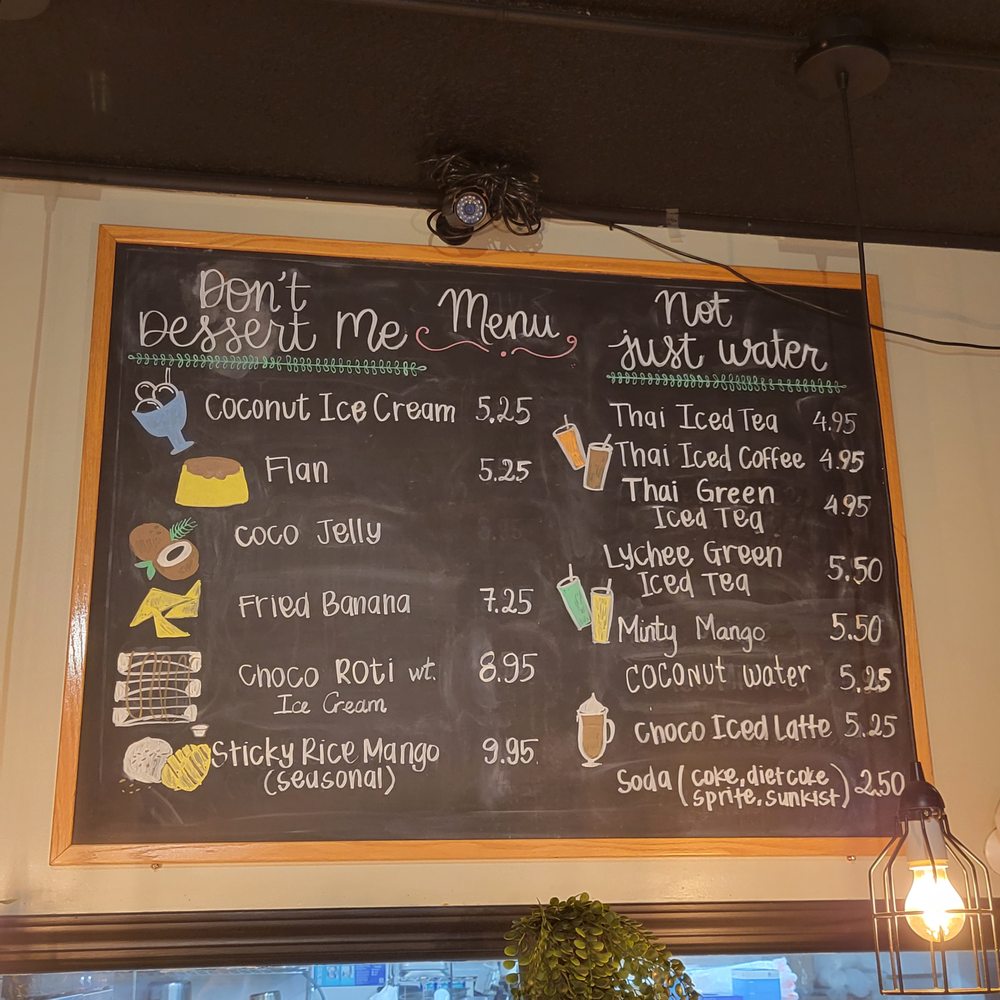 Don't
Dessert Me
Menu
Coconut Ice Cream 5.25
Flan 5.25
Coco Jelly
Fried Banana 7.25
Choco Roti wt. 8.95
Ice Cream
Sticky Rice Mango 9.95
(seasonal)
Not
just water
Thai Iced Tea 4.95
Thai Iced Coffee 4.95
Thai Green
Iced Tea 4.95
Lychee Green
Iced Tea 5.50
Minty Mango 5.50
Coconut water 5.25
Choco Iced Latte 5.25
Soda (coke, diet coke
sprite, sunkist) 2.50